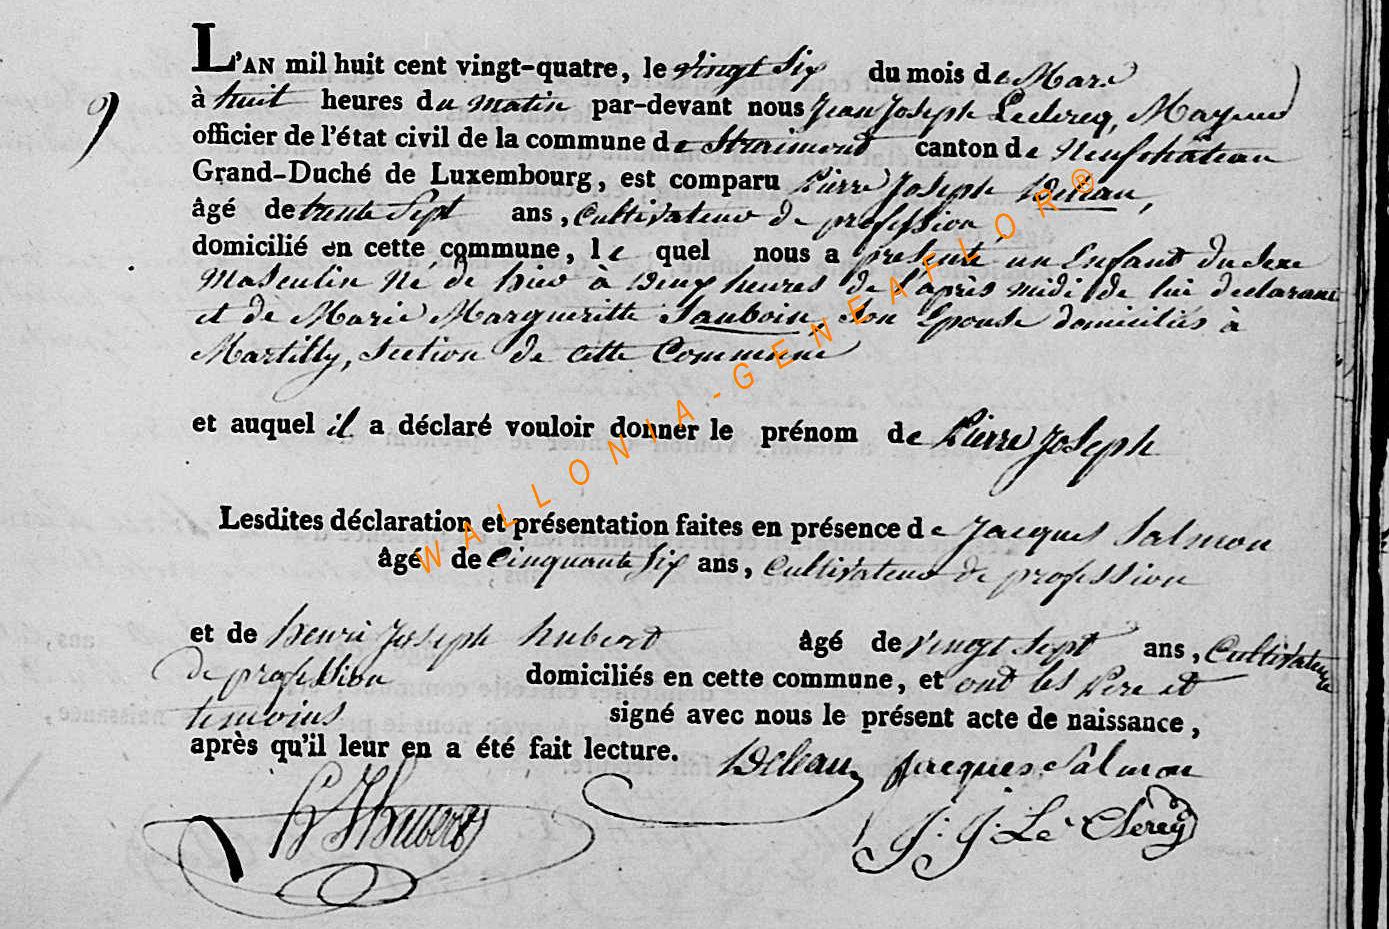 L'AN mil huit cent vingt-quatre, le vingt Six du mois de Mars
9
à huit heures du matin par-devant nous Jean Joseph Leclercq, Mayeur
officier de l'état civil de la commune de Straimont canton de Neufchâteau
Grand-Duché de Luxembourg, est comparu Pierre Joseph Deleau,
âgé de trente Sept ans, Cultivateur de profession
domicilié en cette commune, le quel nous a présenté un Enfant du Sexe
Masculin Né de hier à Deux heures de l'après midi de lui declarant
et de Marie Margueritte Sauboin, Son Epouse domiciliés à
Martilly, Section de cette Commune
et auquel il a déclaré vouloir donner le prénom de Pierre Joseph
Lesdites déclaration et présentation faites en présence de Jacques Salmon
âgé de Cinquante Six ans, Cultivateur de profession
et de henri Joseph hubert âgé de vingt Sept ans, Cultivateur
de profession domiciliés en cette commune, et ont les Pere et
temoins signé avec nous le présent acte de naissance,
après qu'il leur en a été fait lecture. Deleau Jacques Salmon
H J Hubert J: J: Le Clercq
WALLONIA-GENEAFLOR®